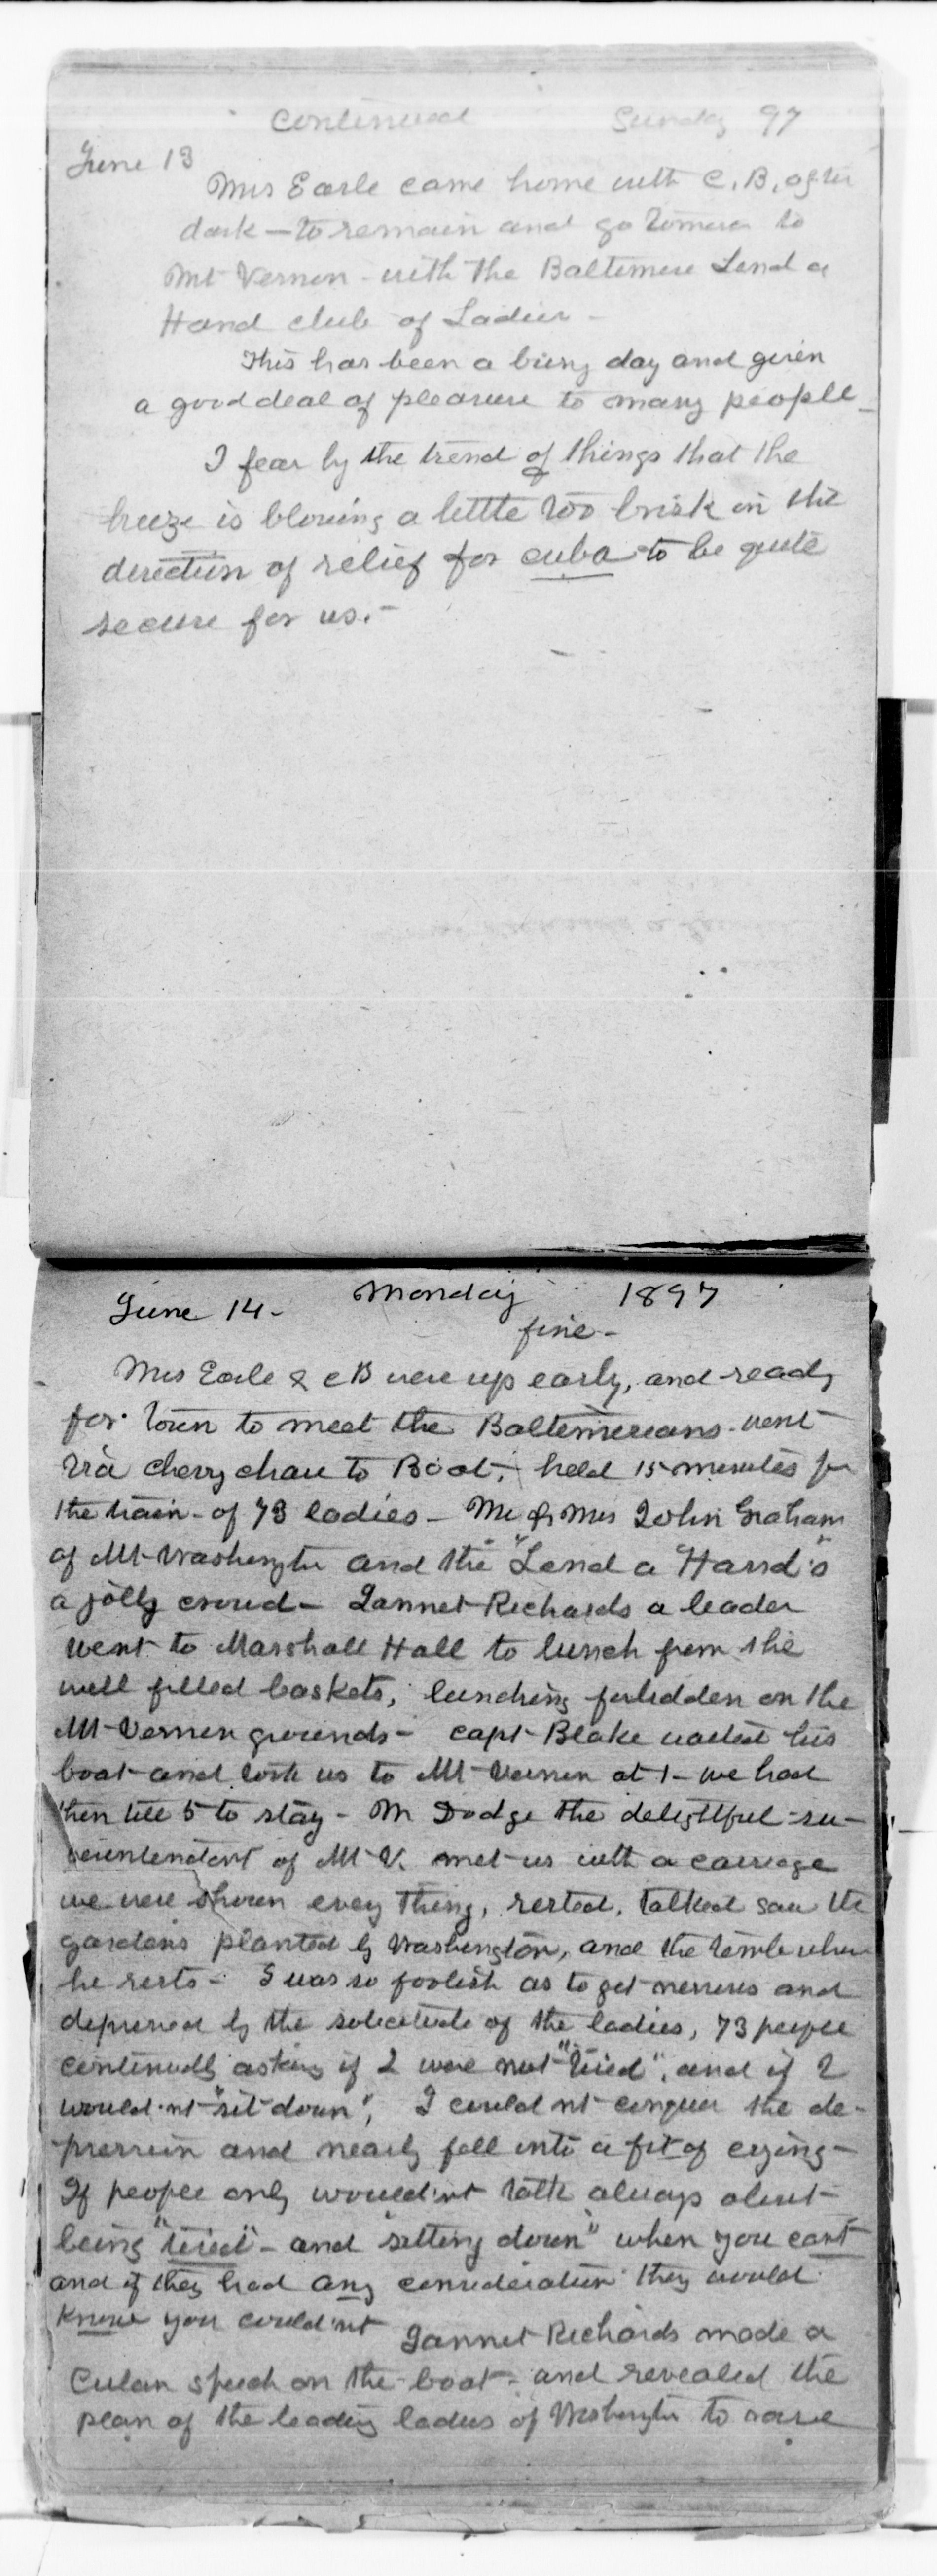 Continued Sunday 97
June 13
Mrs Earle came home with C. B. after
dark — to remain and go tomorrow to
Mt Vernon - with the Baltimore Lend a
Hand club of Ladies -
This has been a busy day and given
a good deal of pleasure to many people -
I fear by the trend of things that the
breeze is blowing a little too brisk in the
direction of relief for Cuba to be quite
secure for us. -
June 14 - Monday 1897
fine -
Mrs Earle & C B were up early, and ready
for town to meet the Baltimoreans - went
via Chevy Chase to Boat, - held 15 minutes for
the train - of 73 ladies - Mr & Mrs John Graham
of Mt Washington and the "Lend a Hand"s
a jolly crowd - Jannet Richards a leader
went to Marshall Hall to lunch from the
well filled baskets, lunching forbidden on the
Mt Vernon grounds - Capt Blake waited his
boat and took us to Mt Vernon at 1 - we had
then till 5 to stay - Mr Dodge the delightful su-
perintendent of Mt V. met us with a carriage
we were shown every thing, rested, talked saw the
gardens planted by Washington, and the tomb where
he rests - I was so foolish as to get nervous and
depressed by the solicitude of the ladies, 73 people
continually asking if I were not "tired", and if I
would nt "sit down", I could nt conquer the de-
pression and nearly fell into a fit of crying -
If people only would'nt talk always about
being "tired" - and "sitting down" when you cant
and if they had any consideration they would
know you could'nt Jannet Richards made a
Cuban speech on the boat - and revealed the
plan of the leading ladies of Washington to raise